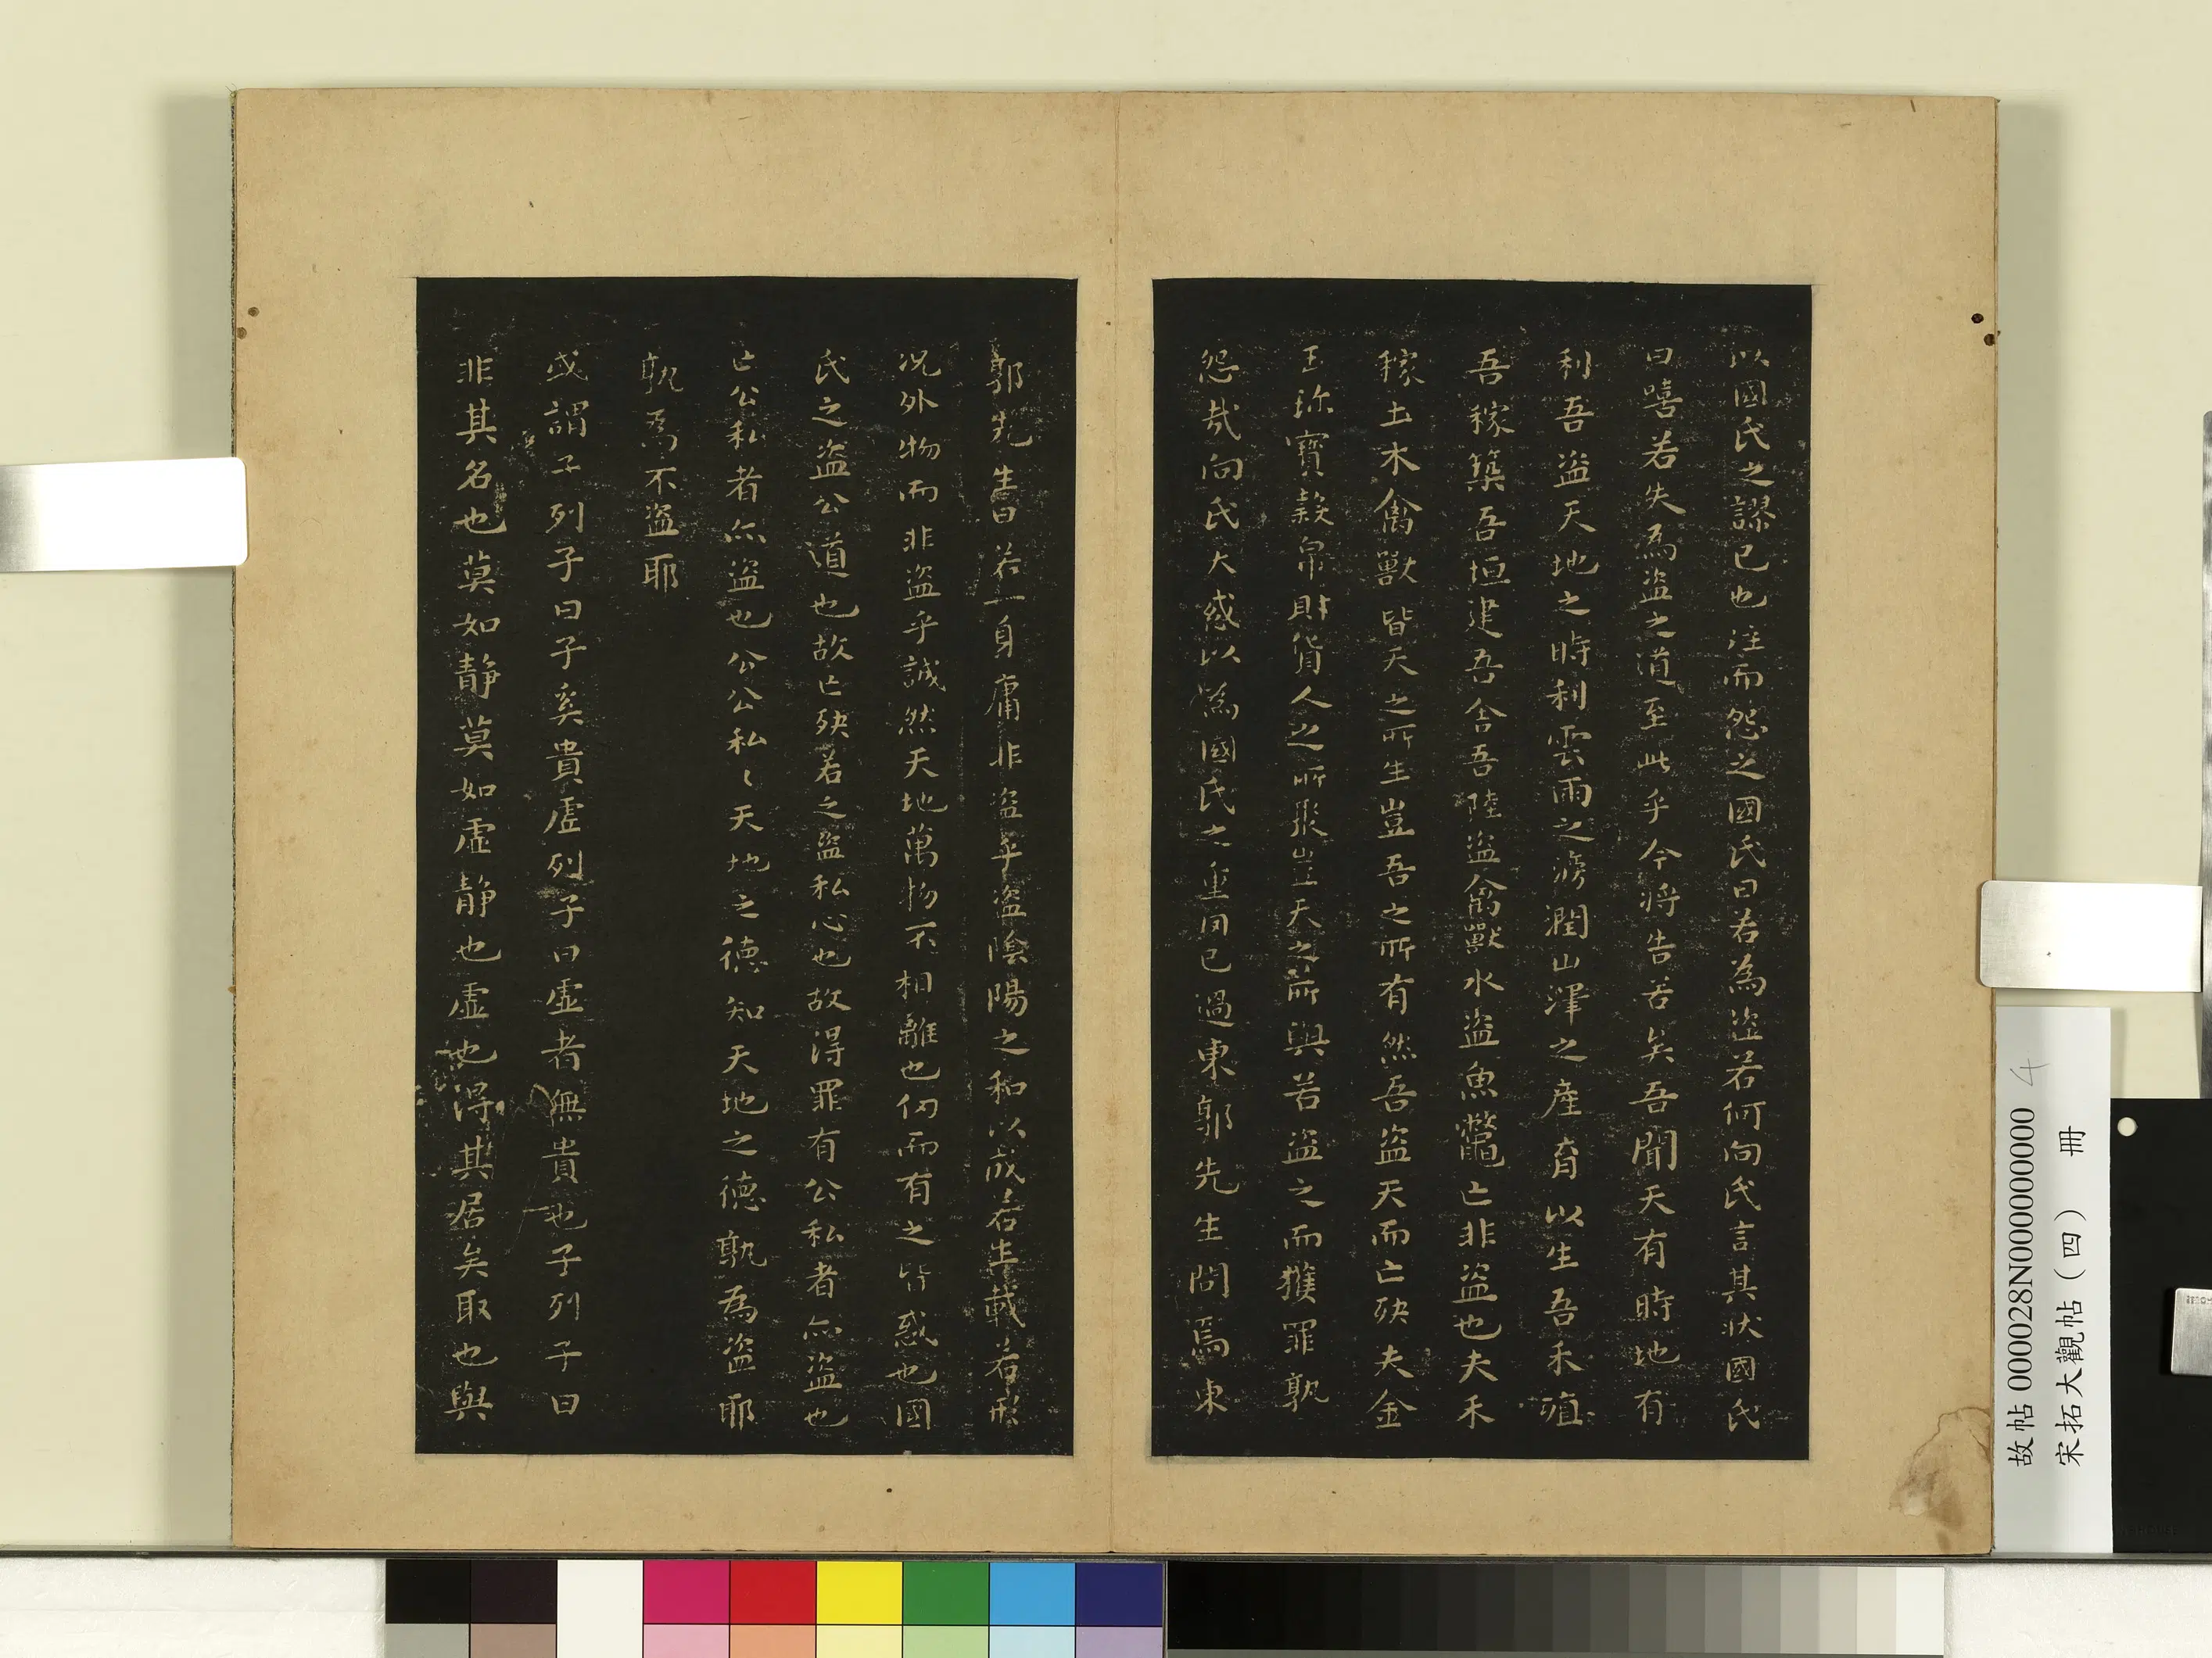 以國氏之謬已也往而怨之國氏曰若為盜若何向氏言其狀國氏
曰嘻若失為盜之道至此乎今將告若矣吾聞天有時地有
利吾盜天地之時利雲雨之滂潤山澤之產育以生吾禾殖
吾稼築吾垣建吾舍吾陸盜禽獸水盜魚鼈亡非盜也夫禾
稼土木禽獸皆天之所生豈吾之所有然吾盜天而亡殃夫金
玉珎寶穀帛財貨人之所聚豈天之所與若盜之而獲罪孰
怨哉向氏大惑以為國氏之重罔已過東郭先生問焉東
郭先生曰若一身庸非盜乎盜陰陽之和以成若生載若形
况外物而非盜乎誠然天地萬物不相離也仞而有之皆惑也國
氏之盜公道也故亡殃若之盜私心也故得罪有公私者亦盜也
亡公私者亦盜也公公私〻天地之德知天地之德孰為盜耶
孰為不盜耶
或謂子列子曰子奚貴虛列子曰虛者無貴也子列子曰
非其名也莫如静莫如虛静也虛也得其居矣取也與
故帖 000028N000000000 4
宋拓大觀帖（四） 冊